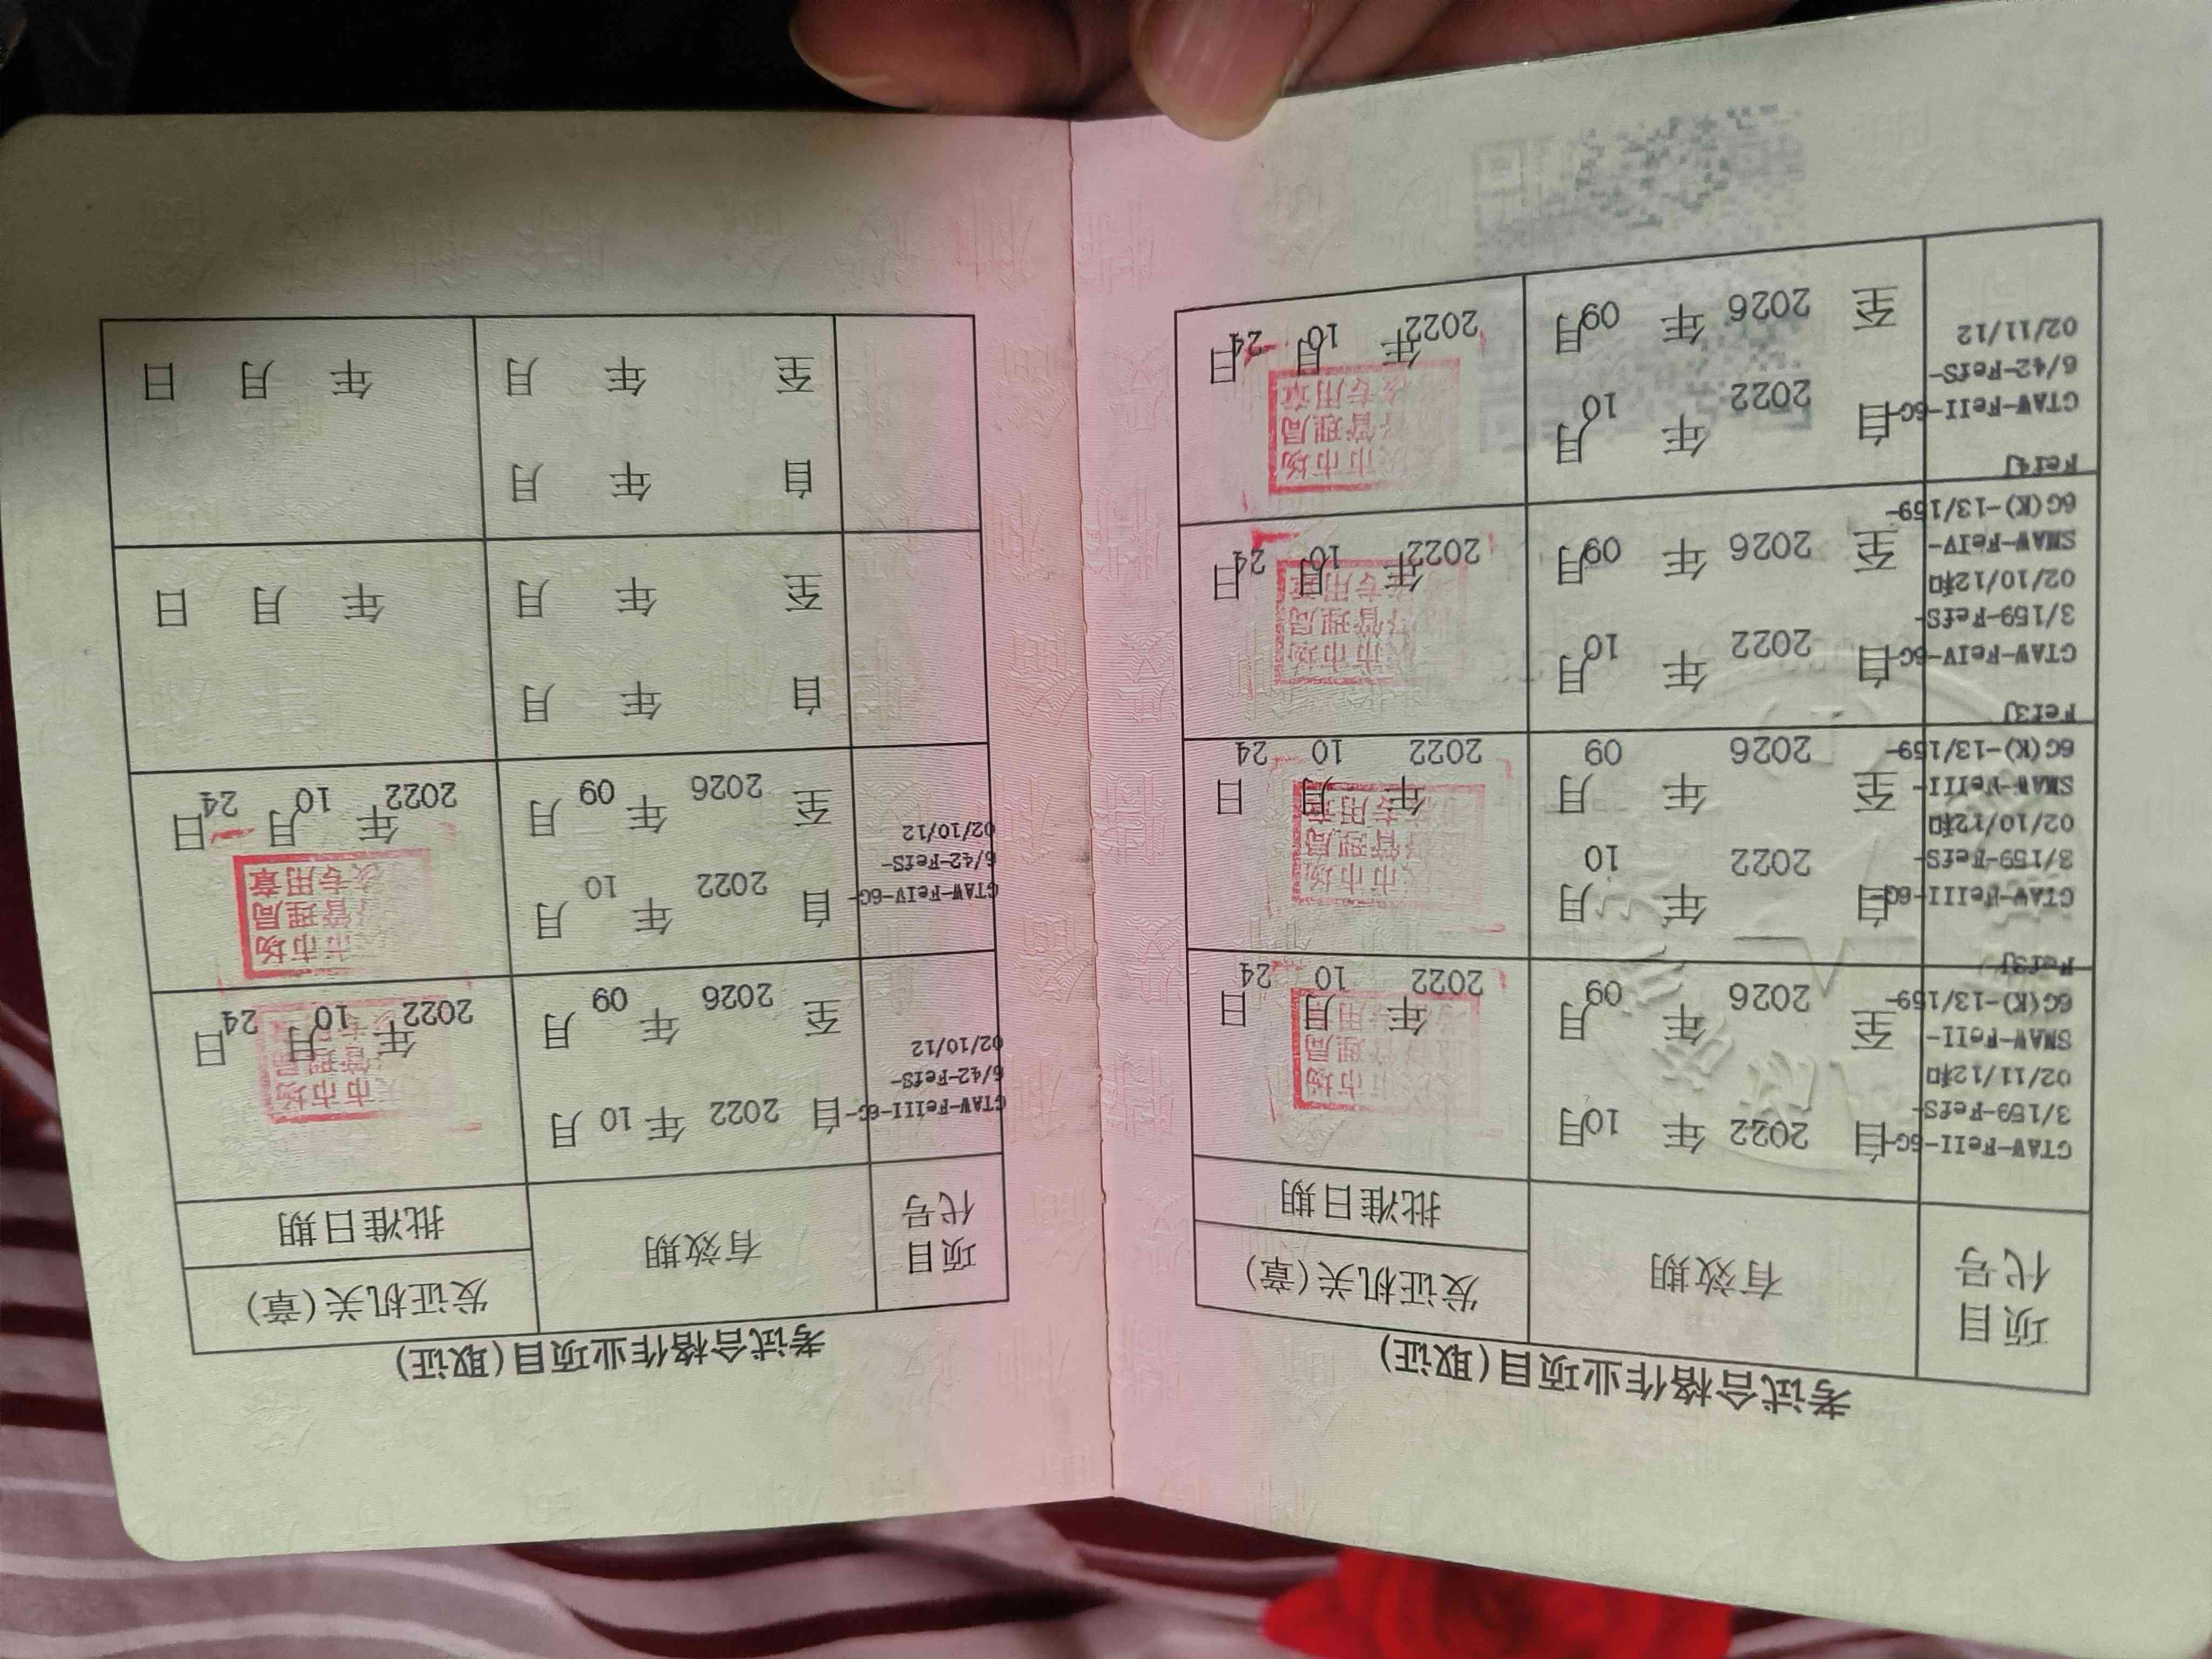 考试合格作业项目(取证)
项目
代号
有效期
发证机关(章)
批准日期
GTAW-FeII-6G-
3/159-FefS-
02/11/12和
SMAW-FeII-
6G(K)-13/159-
Fef3J
自 2022 年 10月
至 2026 年 09月
市市场
管理局
专用章
2022年 10月 24日
GTAW-FeIII-6G-
3/159-FefS-
02/10/12和
SMAW-FeIII-
6G(K)-13/159-
Fef3J
自 2022 年 10月
至 2026 年 09月
市市场
管理局
专用章
2022年 10月 24日
GTAW-FeIV-6G-
3/159-FefS-
02/10/12和
SMAW-FeIV-
6G(K)-13/159-
Fef4J
自 2022 年 10月
至 2026 年 09月
市市场
管理局
专用章
2022年 10月 24日
GTAW-FeII-6G-
6/42-FefS-
02/11/12
自 2022 年 10月
至 2026 年 09月
市市场
管理局
专用章
2022年 10月 24日
考试合格作业项目(取证)
项目
代号
有效期
发证机关(章)
批准日期
GTAW-FeIII-6G-
6/42-FefS-
02/10/12
自 2022 年 10 月
至 2026 年 09 月
市市场
管理局
2022年 10月 24日
GTAW-FeIV-6G-
6/42-FefS-
02/10/12
自 2022 年 10 月
至 2026 年 09 月
市市场
管理局
专用章
2022年 10月 24日
自 年 月
至 年 月
年 月 日
自 年 月
至 年 月
年 月 日